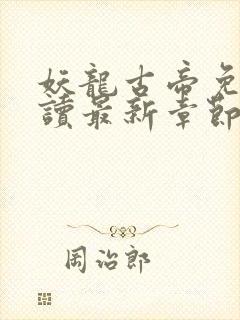 妖龍古帝免
讀最新章節
周治郎